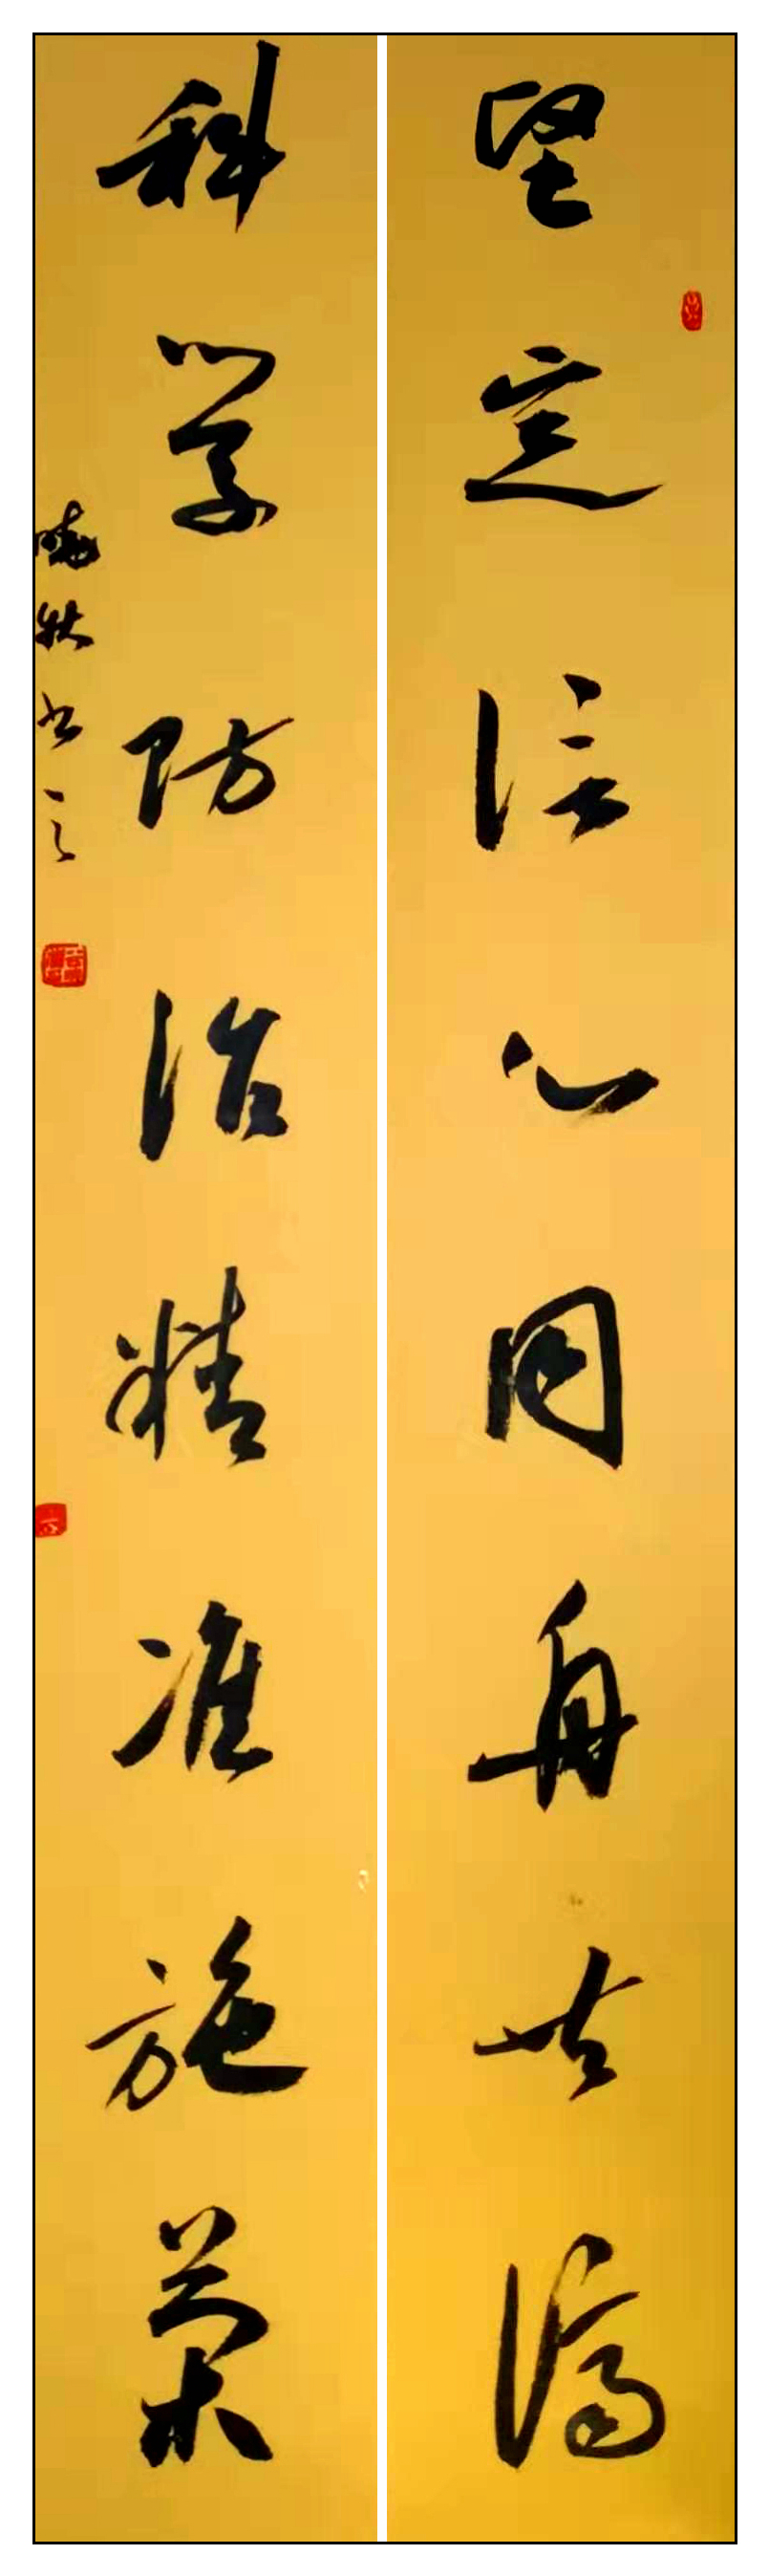 坚定信心同舟共济
科学防治精准施策
晓秋书之